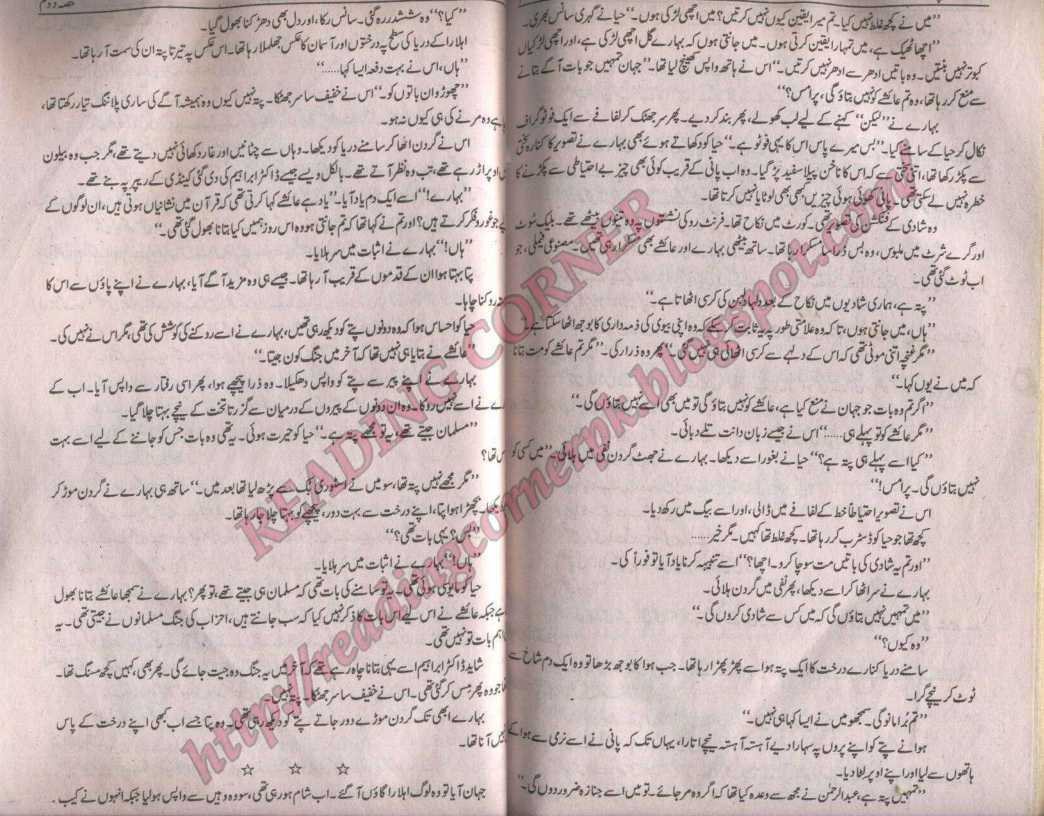 "میں نے کچھ غلط نہیں کیا۔ تم میرا یقین کیوں نہیں کرتیں؟ میں اچھی لڑکی ہوں۔" حیا نے گہری سانس بھری۔
"اچھا ٹھیک ہے، میں تمہارا یقین کرتی ہوں۔ میں جانتی ہوں کہ بہارے گل اچھی لڑکی ہے، اور اچھی لڑکیاں
کبوتر نہیں بنتیں۔ وہ باتیں ادھر سے ادھر نہیں کرتیں۔" اس نے ہاتھ واپس کھینچ لیا تھا۔ "جہان تمہیں جو بات آگے بتانے
سے منع کر رہا تھا، وہ تم عائشے کو نہیں بتاؤ گی، پرامس؟"
بہارے نے "لیکن" کہنے کے لیے لب کھولے، پھر بند کر دیے۔ پھر سر جھٹک کر لفافے سے ایک فوٹو گراف
نکال کر حیا کے سامنے کیا۔ "بس میرے پاس اس کا یہی فوٹو ہے۔" حیا کو دکھاتے ہوئے بھی بہارے نے تصویر کا کنارہ سختی
سے پکڑ رکھا تھا، اتنی سختی سے کہ اس کا ناخن پیلا سفید پڑ گیا۔ وہ اب پانی کے قریب کوئی بھی چیز بے احتیاطی سے پکڑنے کا
خطرہ نہیں لے سکتی تھی۔ پانی کھوئی ہوئی چیزیں کبھی بھی لوٹایا نہیں کرتا تھا۔
وہ شادی کے فنکشن کی تصویر تھی۔ کورٹ میں نکاح تھا۔ فرنٹ رو کی نشستوں پہ وہ تینوں بیٹھے تھے۔ بلیک سوٹ
اور گرے شرٹ میں ملبوس، وہ بس ذرا سا مسکرا رہا تھا۔ ساتھ بیٹھی بہارے اور عائشے بھی مسکرا رہی تھیں۔ مصنوعی فیملی، جو
اب ٹوٹ گئی تھی۔
"پتہ ہے، ہماری شادیوں میں نکاح کے بعد دلہا دلہن کی کرسی اٹھاتا ہے۔"
"ہاں، میں جانتی ہوں، تاکہ وہ علامتی طور پہ یہ ثابت کر سکے کہ وہ اپنی بیوی کی ذمہ داری کا بوجھ اٹھا سکتا ہے۔"
"مگر غنچہ اتنی موٹی تھی کہ اس کے دلہے سے کرسی اٹھائی ہی نہیں گئی۔" پھر وہ ذرا رکی۔ "مگر تم عائشے کو مت بتانا
کہ میں نے یوں کہا۔"
"اگر تم وہ بات جو جہان نے منع کیا ہے، عائشے کو نہیں بتاؤ گی تو میں بھی اسے نہیں بتاؤں گی۔"
"مگر عائشے کو تو پہلے ہی......" اس نے جیسے زبان دانت تلے دبائی۔
"کیا اسے پہلے ہی پتہ ہے؟" حیا نے بغور اسے دیکھا۔ بہارے نے جھٹ گردن نفی میں ہلائی۔ "میں کسی کو
نہیں بتاؤں گی۔ پرامس!"
اس نے تصویر احتیاطاً خط کے لفافے میں ڈالی، اور اسے بیگ میں رکھ دیا۔
کچھ تھا جو حیا کو ڈسٹرب کر رہا تھا۔ کچھ غلط تھا کہیں۔ مگر خیر......
"اور تم یہ شادی کی باتیں مت سوچا کرو۔ اچھا؟" اسے تنبیہہ کرنا یاد آیا تو فوراً کی۔
بہارے نے سر اٹھا کر اسے دیکھا، پھر نفی میں گردن ہلائی۔
"میں تمہیں نہیں بتاؤں گی کہ میں کس سے شادی کروں گی۔"
"وہ کیوں؟"
سامنے دریا کنارے درخت کا ایک پتہ ہوا سے پھڑ پھڑا رہا تھا۔ جب ہوا کا بوجھ بڑھا تو وہ ایک دم شاخ سے
ٹوٹ کر نیچے گرا۔
"تم برا مانو گی۔ سمجھو میں نے ایسا کہا ہی نہیں۔"
ہوا نے پتے کو اپنے پروں پہ سہارا دیے آہستہ آہستہ نیچے اتارا، یہاں تک کہ پانی نے اسے نرمی سے ہوا کے
ہاتھوں سے لیا اور اپنے اوپر لٹا دیا۔
"تمہیں پتہ ہے، عبدالرحمٰن نے مجھ سے وعدہ کیا تھا کہ اگر وہ مر جائے۔ تو میں اسے جنازہ ضرور دوں گی۔"
حصہ دوم
"کیا؟" وہ ششدر رہ گئی۔ سانس رکا، اور دل بھی دھڑکنا بھول گیا۔
اہلارا کے دریا کی سطح پہ درختوں اور آسمان کا عکس جھلملا رہا تھا۔ اس عکس پہ تیرتا پتہ ان کی سمت آ رہا تھا۔
"ہاں، اس نے بہت دفعہ ایسا کہا......"
"چھوڑو ان باتوں کو۔" اس نے خفیف سا سر جھٹکا۔ پتہ نہیں کیوں وہ ہمیشہ آگے کی ساری پلاننگ تیار رکھتا تھا،
ہے وہ مرنے کی ہی کیوں نہ ہو۔
اس نے گردن اٹھا کر سامنے دریا کو دیکھا۔ وہاں سے چٹانیں اور غار دکھائی نہیں دیتے تھے، مگر جب وہ بیلون
اوپر اڑ رہے تھے، تب وہ نظر آتے تھے۔ بالکل ویسے جیسے ڈاکٹر ابراہیم کی دی گئی کینڈی کے ریپر پہ بنے تھے۔
"بہارے!" اسے ایک دم یاد آیا۔ "یاد ہے عائشے کہا کرتی تھی کہ قرآن میں نشانیاں ہوتی ہیں، ان لوگوں کے
جو غور و فکر کرتے ہیں؟ اور تم نے کہا تھا کہ تم جانتی ہو وہ اس روز ہمیں کیا بتانا بھول گئی تھی۔"
"ہاں!" بہارے نے اثبات میں سر ہلایا۔
پتا بہتا ہوا ان کے قدموں کے قریب آ رہا تھا۔ جیسے ہی وہ مزید آگے آیا، بہارے نے اپنے پاؤں سے اس کا
روکنا چاہا۔
حیا کو احساس ہوا کہ وہ دونوں پتے کو دیکھ رہی تھیں، بہارے نے اسے روکنے کی کوشش کی تھی، مگر اس نے نہیں کی۔
"عائشے نے بتایا ہی نہیں تھا کہ آخر میں جنگ کون جیتا۔"
بہارے نے اپنے پیر سے پتے کو واپس دھکیلا۔ وہ ذرا پیچھے ہوا، پھر اسی رفتار سے واپس آیا۔ اب کے
نے اسے نہیں روکا۔ وہ ان دونوں کے پیروں کے درمیان سے گزرتا تخت کے نیچے بہتا چلا گیا۔
"مسلمان جیتے تھے، یہ تو مجھے پتہ ہے۔" حیا کو حیرت ہوئی۔ یہ تھی وہ بات جس کو جاننے کے لیے اسے بہت
تھا؟
"مگر مجھے نہیں پتہ تھا، سو میں نے اسٹوری بک سے پڑھ لیا تھا بعد میں۔" ساتھ ہی بہارے نے گردن موڑ کر
بچھڑا ہوا پتا، اپنے درخت سے بہت دور، پیچھے کو بہتا چلا جا رہا تھا۔
"بس؟ یہی بات تھی؟"
"ہاں!" بہارے نے اثبات میں سر ہلایا۔
حیا کو مایوسی ہوئی تھی۔ یہ تو سامنے کی بات تھی کہ مسلمان ہی جیتے تھے، تو پھر؟ بہارے نے سمجھا عائشے بتانا بھول
ہے جبکہ عائشے نے اس لیے اس بات کا ذکر نہیں کیا کہ سب جانتے ہیں، احزاب کی جنگ مسلمانوں نے جیتی تھی۔ یہ
اہم بات تو نہیں تھی۔
شاید ڈاکٹر ابراہیم اسے یہی بتانا چاہ رہے تھے کہ آخر میں یہ جنگ وہ جیت جائے گی۔ پھر بھی، کہیں کچھ مسنگ تھا۔
جو وہ پھر مس کر گئی تھی۔ اس نے خفیف سا سر جھٹکا۔ پتہ نہیں۔
بہارے ابھی تک گردن موڑے دور جاتے پتے کو دیکھ رہی تھی۔ وہ پتا جسے اب کبھی اپنے درخت کے پاس
نہیں آنا تھا۔
☆ ☆ ☆
جہان آیا تو وہ لوگ اہلارا گاؤں آ گئے۔ اب شام ہو رہی تھی، سو وہ وہیں سے واپس ہو لیا جبکہ انہوں نے کیب۔
READING CORNER
http://readingcornerpk.blogspot.com/